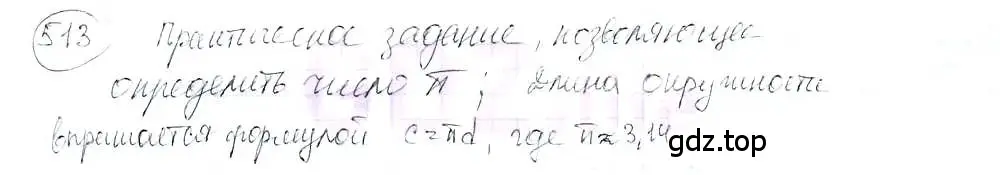 513 Практическое задание, позволяющее
определить число π; Длина окружности
выражается формулой c=πd, где π≈3,14
gdz.top